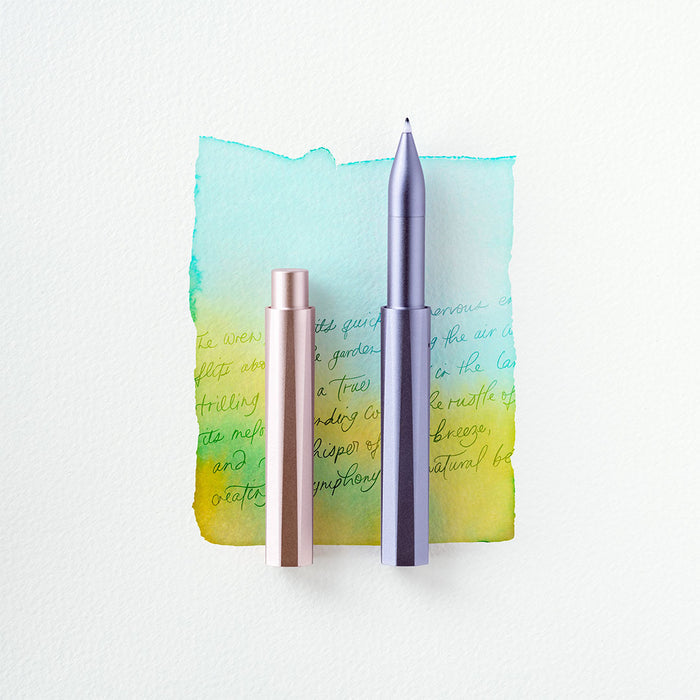 The wren its quick nervous en
flits abo garden the air
trilling a true in the
its melo nding the rustle of
and hisper of breeze,
creating symphony natural be